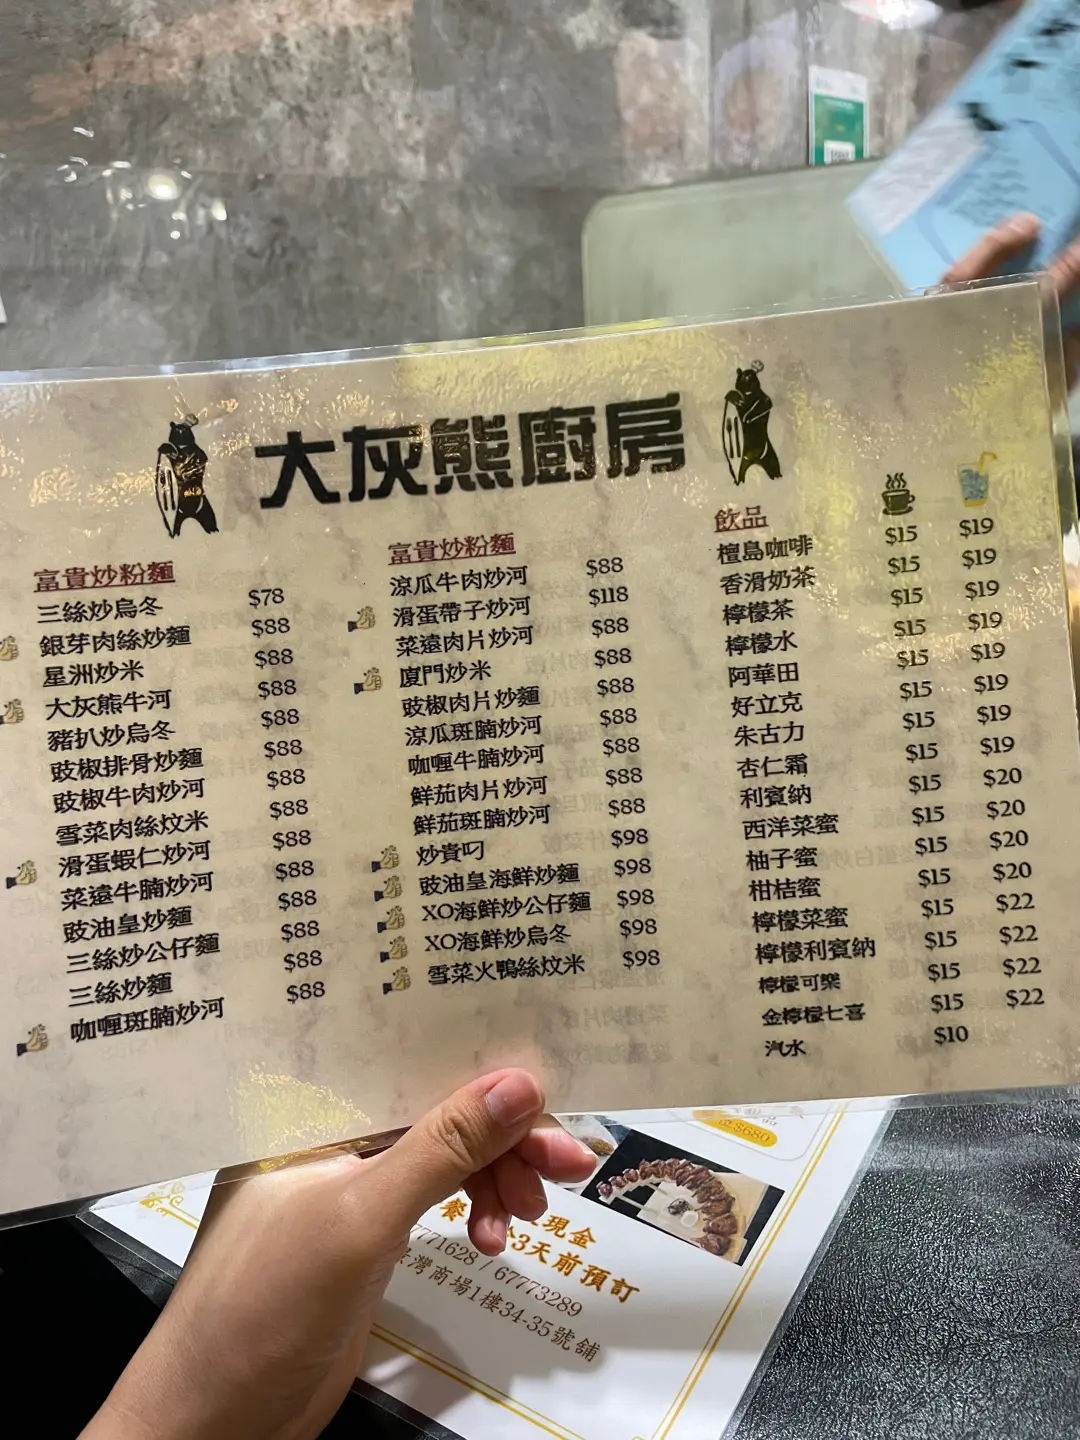 大灰熊廚房
富貴炒粉麵
三絲炒烏冬 $78
銀芽肉絲炒麵 $88
星洲炒米 $88
大灰熊牛河 $88
豬扒炒烏冬 $88
豉椒排骨炒麵 $88
豉椒牛肉炒河 $88
雪菜肉絲炆米 $88
滑蛋蝦仁炒河 $88
菜遠牛腩炒河 $88
豉油皇炒麵 $88
三絲炒公仔麵 $88
三絲炒麵 $88
咖喱斑腩炒河 $88
富貴炒粉麵
涼瓜牛肉炒河 $88
滑蛋帶子炒河 $118
菜遠肉片炒河 $88
廈門炒米 $88
豉椒肉片炒麵 $88
涼瓜斑腩炒河 $88
咖喱牛腩炒河 $88
鮮茄肉片炒河 $88
鮮茄斑腩炒河 $88
炒貴叼 $98
豉油皇海鮮炒麵 $98
XO海鮮炒公仔麵 $98
XO海鮮炒烏冬 $98
雪菜火鴨絲炆米 $98
飲品
檀島咖啡 $15 $19
香滑奶茶 $15 $19
檸檬茶 $15 $19
檸檬水 $15 $19
阿華田 $15 $19
好立克 $15 $19
朱古力 $15 $19
杏仁霜 $15 $19
利賓納 $15 $20
西洋菜蜜 $15 $20
柚子蜜 $15 $20
柑桔蜜 $15 $20
檸檬菜蜜 $15 $22
檸檬利賓納 $15 $22
檸檬可樂 $15 $22
金檸檬七喜 $15 $22
汽水 $10
$680
現金
餐 3天前預訂
7771628 / 67773289
灣商場1樓34-35號舖